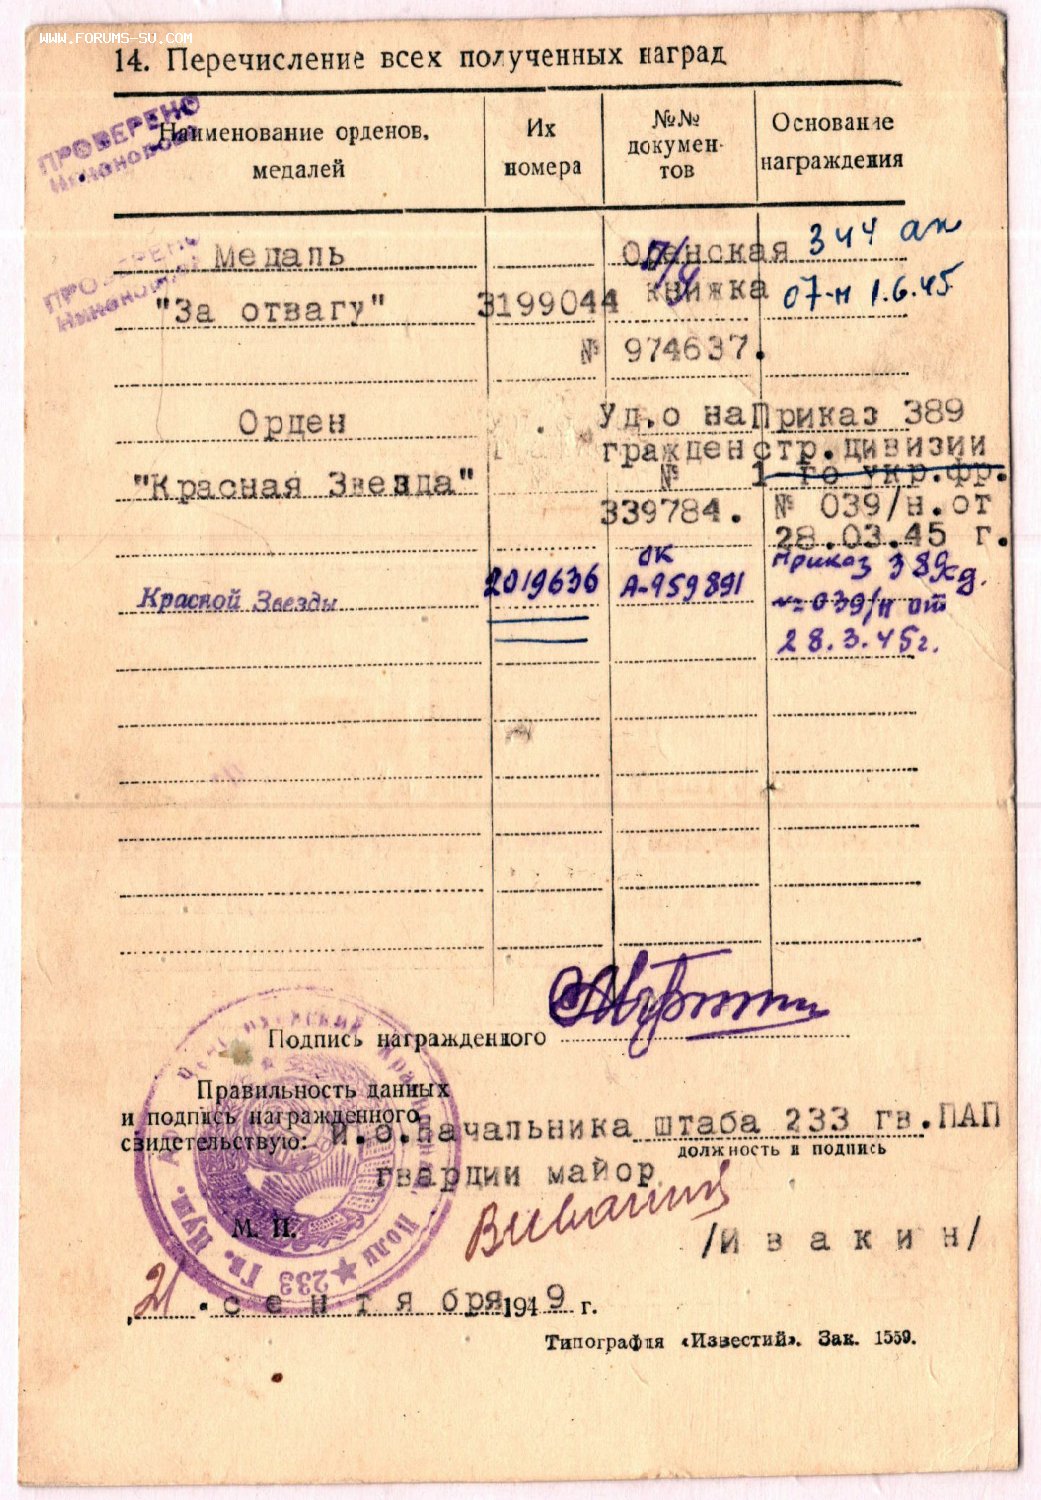 WWW.FORUMS-SU.COM
14. Перечисление всех полученных наград
ПРОВЕРЕНО
Наименование орденов, медалей
Их номера
№№ документов
Основание награждения
ПРОВЕРЕНО
Медаль
"За отвагу"
3199044
Оденская
книжка
№ 974637.
344 ап
07-н 1.6.45
Орден
"Красная Звезда"
Уд.о на
гражден
№
339784.
Приказ 389
стр.дивизии
1-го укр.фр.
№ 039/н.от
28.03.45 г.
Красной Звезды
2019636
ОК
А-959891
Приказ 389 сд.
№ 039/н от
28.3.45г.
Подпись награжденного
Правильность данных
и подпись награжденного
свидетельствую:
И.о.Начальника штаба 233 гв.ПАП
должность и подпись
гвардии майор
М. П.
/И в а к и н/
233 Гв. Пуш. Полк
21 . сентября 1949 г.
Типография «Известий». Зак. 1559.